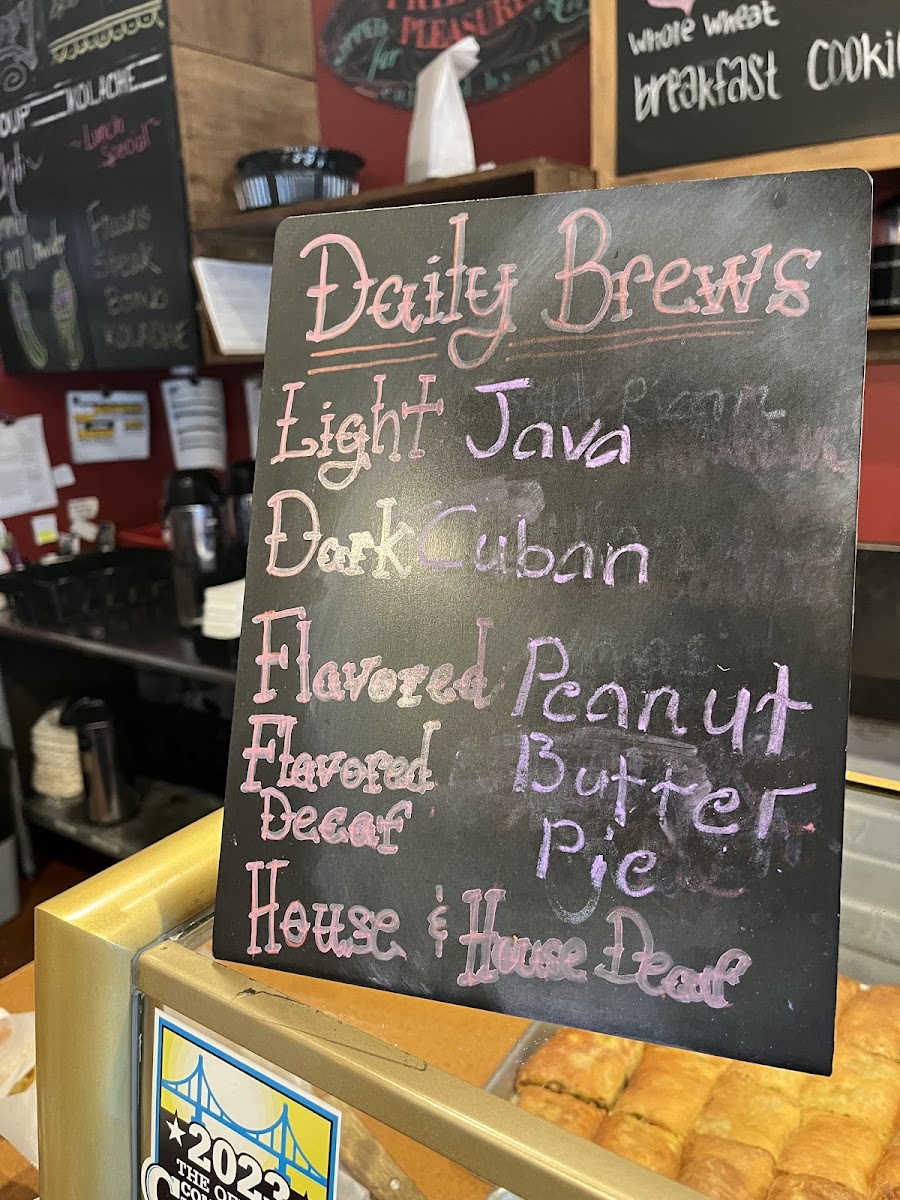 PLEASURE
Whole Wheat
breakfast
KOLACHE
~Lunch
Special~
Steak
KOLACHE
Daily Brews
Light Java
Dark Cuban
Flavored Peanut
Flavored Butter
Decaf Pie
House & House Decaf
2023
THE